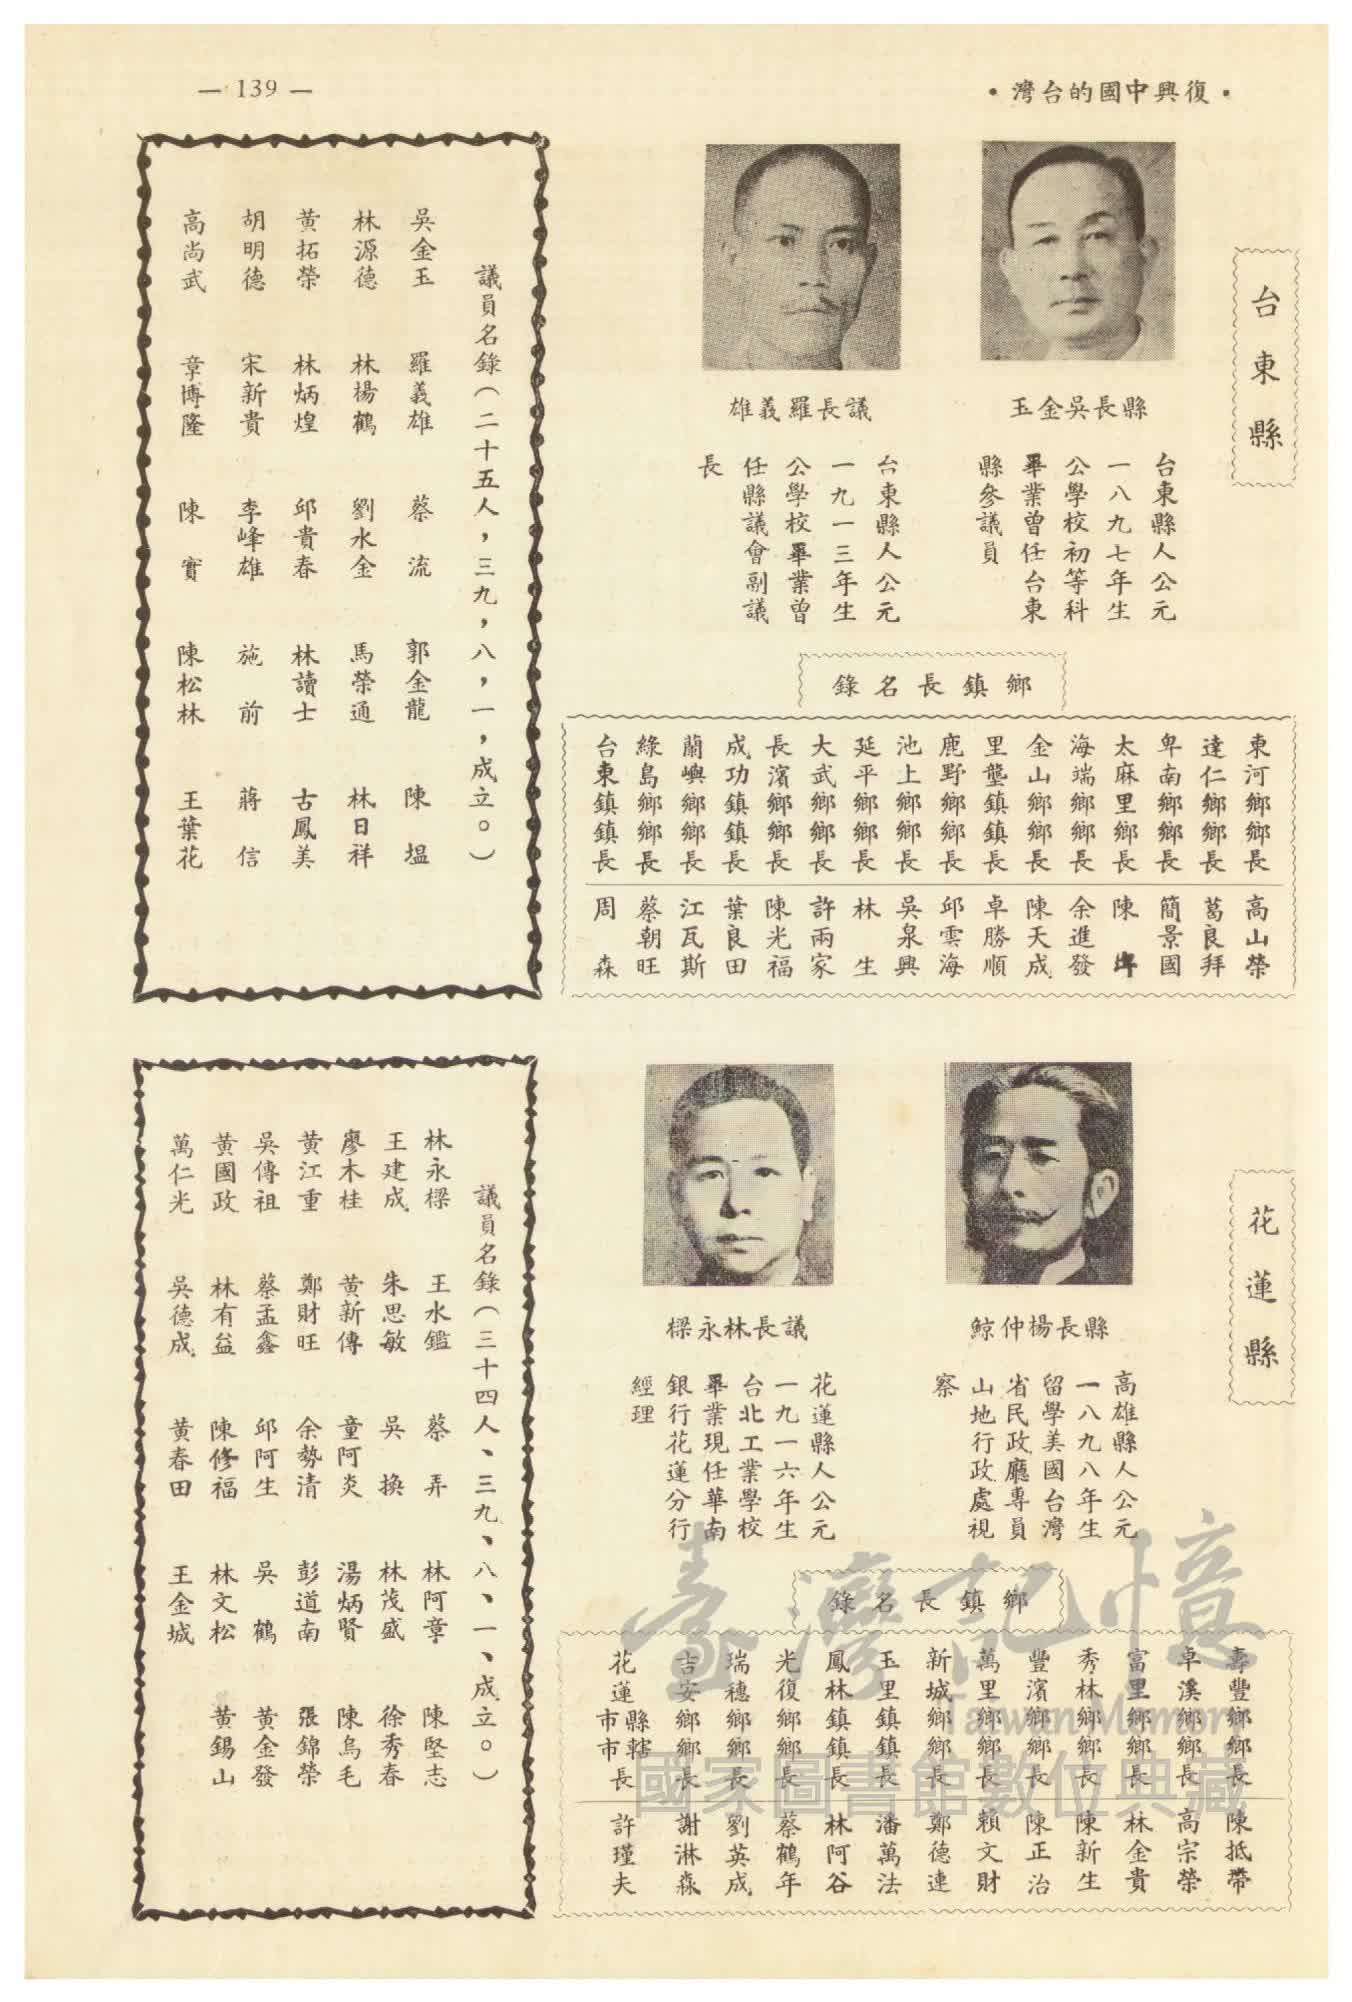 — 139 —
•復興中國的台灣•
台東縣
縣長吳金玉
台東縣人公元
一八九七年生
公學校初等科
畢業曾任台東
縣參議員
議長羅義雄
台東縣人公元
一九一三年生
公學校畢業曾
任縣議會副議
長
鄉鎮長名錄
東河鄉鄉長 高山榮
達仁鄉鄉長 葛良拜
卑南鄉鄉長 簡景國
太麻里鄉長 陳
海端鄉鄉長 余進發
金山鄉鄉長 陳天成
里壟鎮鎮長 卓勝順
鹿野鄉鄉長 邱雲海
池上鄉鄉長 吳泉興
延平鄉鄉長 林生
大武鄉鄉長 許兩家
長濱鄉鄉長 陳光福
成功鎮鎮長 葉良田
蘭嶼鄉鄉長 江瓦斯
綠島鄉鄉長 蔡朝旺
台東鎮鎮長 周森
議員名錄(二十五人,三九,八,一,成立。)
吳金玉 羅義雄 蔡流 郭金龍 陳塭
林源德 林楊鶴 劉水金 馬榮通 林日祥
黃拓榮 林炳煌 邱貴春 林讀士 古鳳美
胡明德 宋新貴 李峰雄 施前 蔣信
高尚武 章博隆 陳實 陳松林 王葉花
花蓮縣
縣長楊仲鯨
高雄縣人公元
一八九八年生
留學美國台灣
省民政廳專員
山地行政處視
察
議長林永樑
花蓮縣人公元
一九一六年生
台北工業學校
畢業現任華南
銀行花蓮分行
經理
鄉鎮長名錄
壽豐鄉鄉長 陳抵帶
卓溪鄉鄉長 高宗榮
富里鄉鄉長 林金貴
秀林鄉鄉長 陳新生
豐濱鄉鄉長 陳正治
萬里鄉鄉長 賴文財
新城鄉鄉長 鄭德連
玉里鎮鎮長 潘萬法
鳳林鎮鎮長 林阿谷
光復鄉鄉長 蔡鶴年
瑞穗鄉鄉長 劉英成
吉安鄉鄉長 謝淋森
花蓮縣轄市市長 許瑾夫
議員名錄(三十四人、三九、八、一、成立。)
林永樑 王水鑑 蔡弄 林阿章 陳堅志
王建成 朱思敏 吳換 林茂盛 徐秀春
廖木桂 黃新傳 童阿炎 湯炳賢 陳烏毛
黃江重 鄭財旺 余勢清 彭道南 張錦榮
吳傳祖 蔡孟鑫 邱阿生 吳鶴 黃金發
黃國政 林有益 陳修福 林文松 黃錫山
萬仁光 吳德成 黃春田 王金城
臺灣記憶
Taiwan Memory
國家圖書館數位典藏